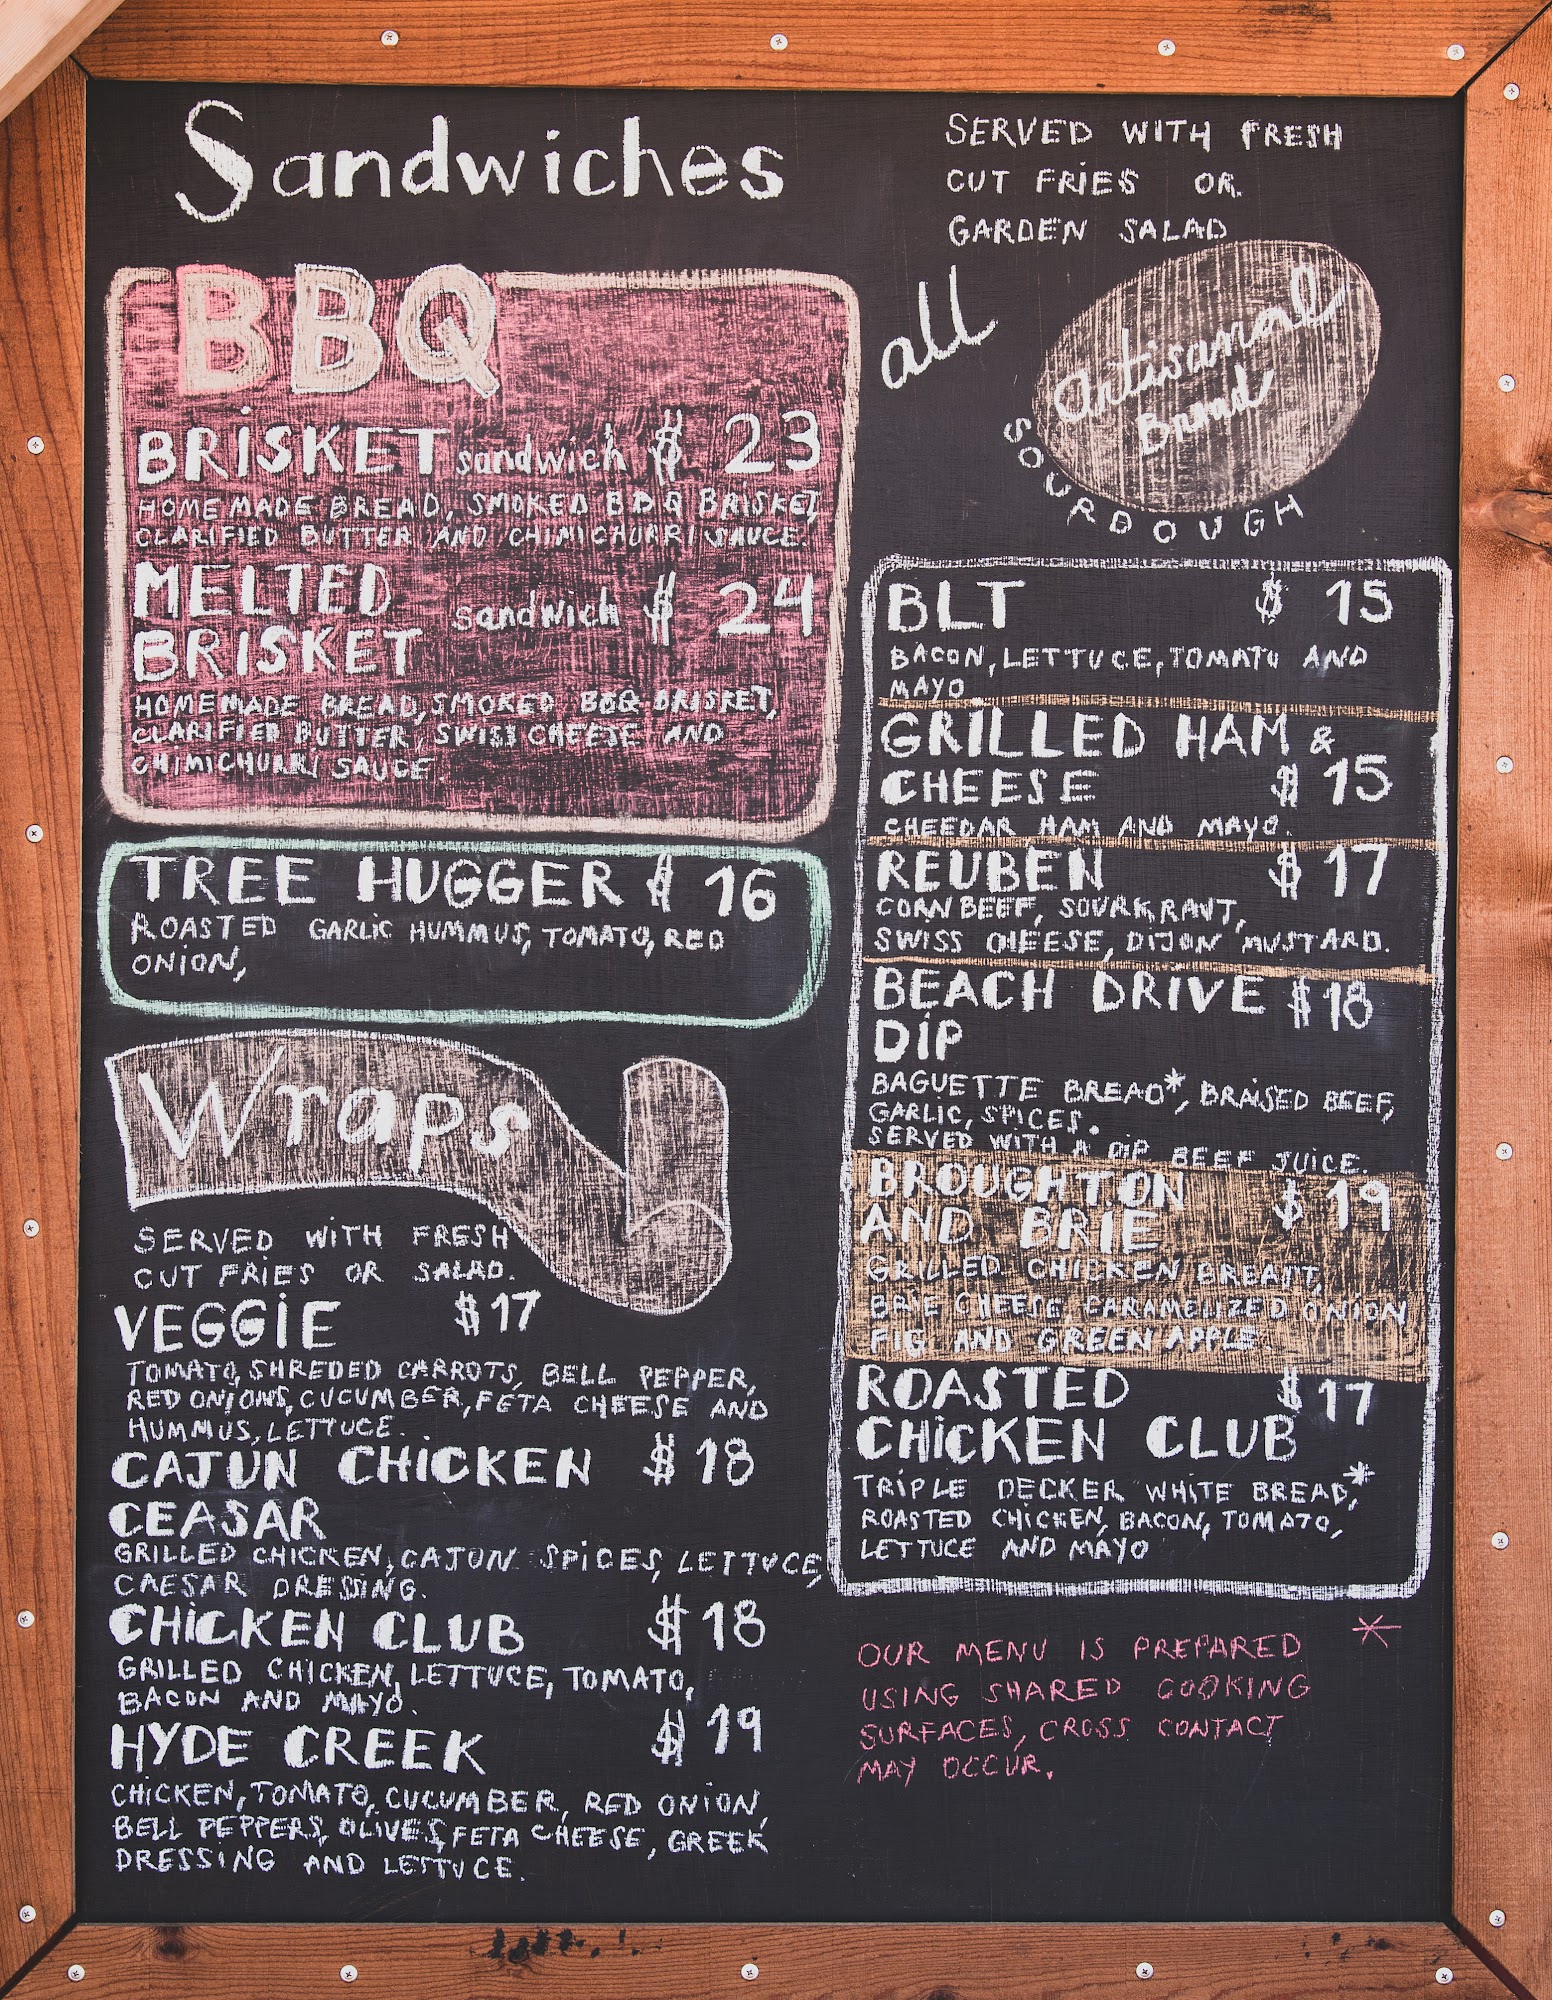 Sandwiches
SERVED WITH FRESH
CUT FRIES OR
GARDEN SALAD
all
Artisanal
Bread
SOURDOUGH
BBQ
BRISKET sandwich $ 23
HOMEMADE BREAD, SMOKED BBQ BRISKET,
CLARIFIED BUTTER AND CHIMICHURRI SAUCE.
MELTED
BRISKET sandwich $ 24
HOMEMADE BREAD, SMOKED BBQ BRISKET,
CLARIFIED BUTTER, SWISS CHEESE AND
CHIMICHURRI SAUCE.
TREE HUGGER $ 16
ROASTED GARLIC HUMMUS, TOMATO, RED
ONION,
Wraps
SERVED WITH FRESH
CUT FRIES OR SALAD.
VEGGIE $17
TOMATO, SHREDED CARROTS, BELL PEPPER,
RED ONIONS, CUCUMBER, FETA CHEESE AND
HUMMUS, LETTUCE.
CAJUN CHICKEN $ 18
CEASAR
GRILLED CHICKEN, CAJUN SPICES, LETTUCE,
CAESAR DRESSING.
CHICKEN CLUB $18
GRILLED CHICKEN, LETTUCE, TOMATO,
BACON AND MAYO.
HYDE CREEK $ 19
CHICKEN, TOMATO, CUCUMBER, RED ONION,
BELL PEPPERS, OLIVES, FETA CHEESE, GREEK
DRESSING AND LETTUCE.
BLT $ 15
BACON, LETTUCE, TOMATO AND
MAYO.
GRILLED HAM &
CHEESE $ 15
CHEEDAR HAM AND MAYO.
REUBEN $ 17
CORN BEEF, SOURKRAUT,
SWISS CHEESE, DIJON MUSTARD.
BEACH DRIVE $18
DIP
BAGUETTE BREAD*, BRAISED BEEF,
GARLIC, SPICES.
SERVED WITH A DIP BEEF JUICE.
BROUGHTON $ 19
AND BRIE
GRILLED CHICKEN BREAST,
BRIE CHEESE, CARAMELIZED ONION
FIG AND GREEN APPLE.
ROASTED $ 17
CHICKEN CLUB
TRIPLE DECKER WHITE BREAD*,
ROASTED CHICKEN, BACON, TOMATO,
LETTUCE AND MAYO
*
OUR MENU IS PREPARED
USING SHARED COOKING
SURFACES, CROSS CONTACT
MAY OCCUR.